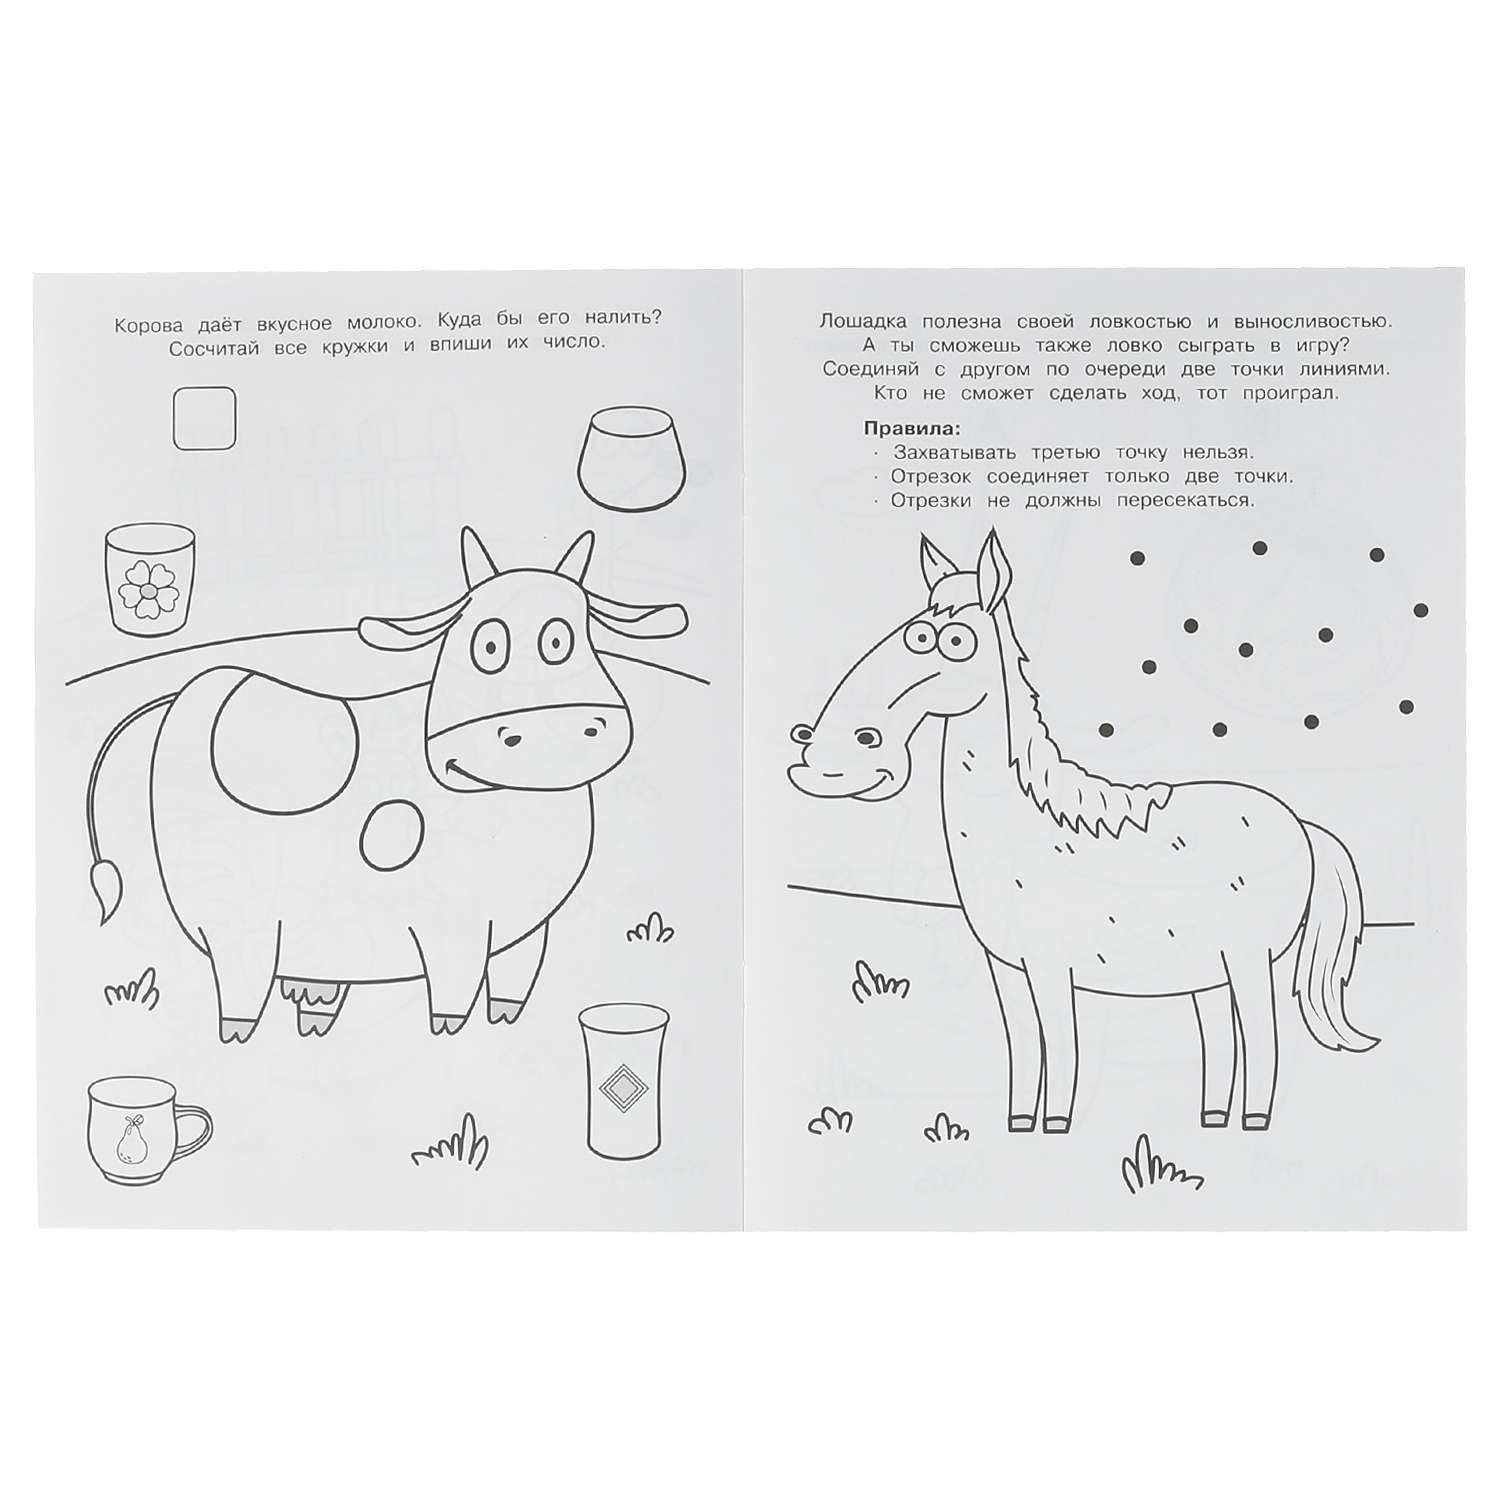 Корова даёт вкусное молоко. Куда бы его налить?
Сосчитай все кружки и впиши их число.
Лошадка полезна своей ловкостью и выносливостью.
А ты сможешь также ловко сыграть в игру?
Соединяй с другом по очереди две точки линиями.
Кто не сможет сделать ход, тот проиграл.
Правила:
· Захватывать третью точку нельзя.
· Отрезок соединяет только две точки.
· Отрезки не должны пересекаться.